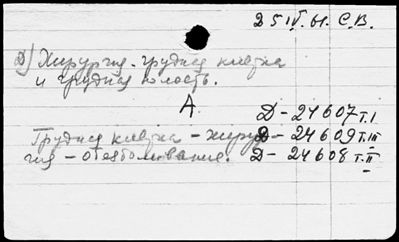 25 IV. 61. С.В.
Д) Хирургия - грудная клетка
и грудная полость.
А.
Д-24607 т. I
Грудная клетка - хирур- Д-24609 т. III
гия - обезболивание. Д-24608 т. II